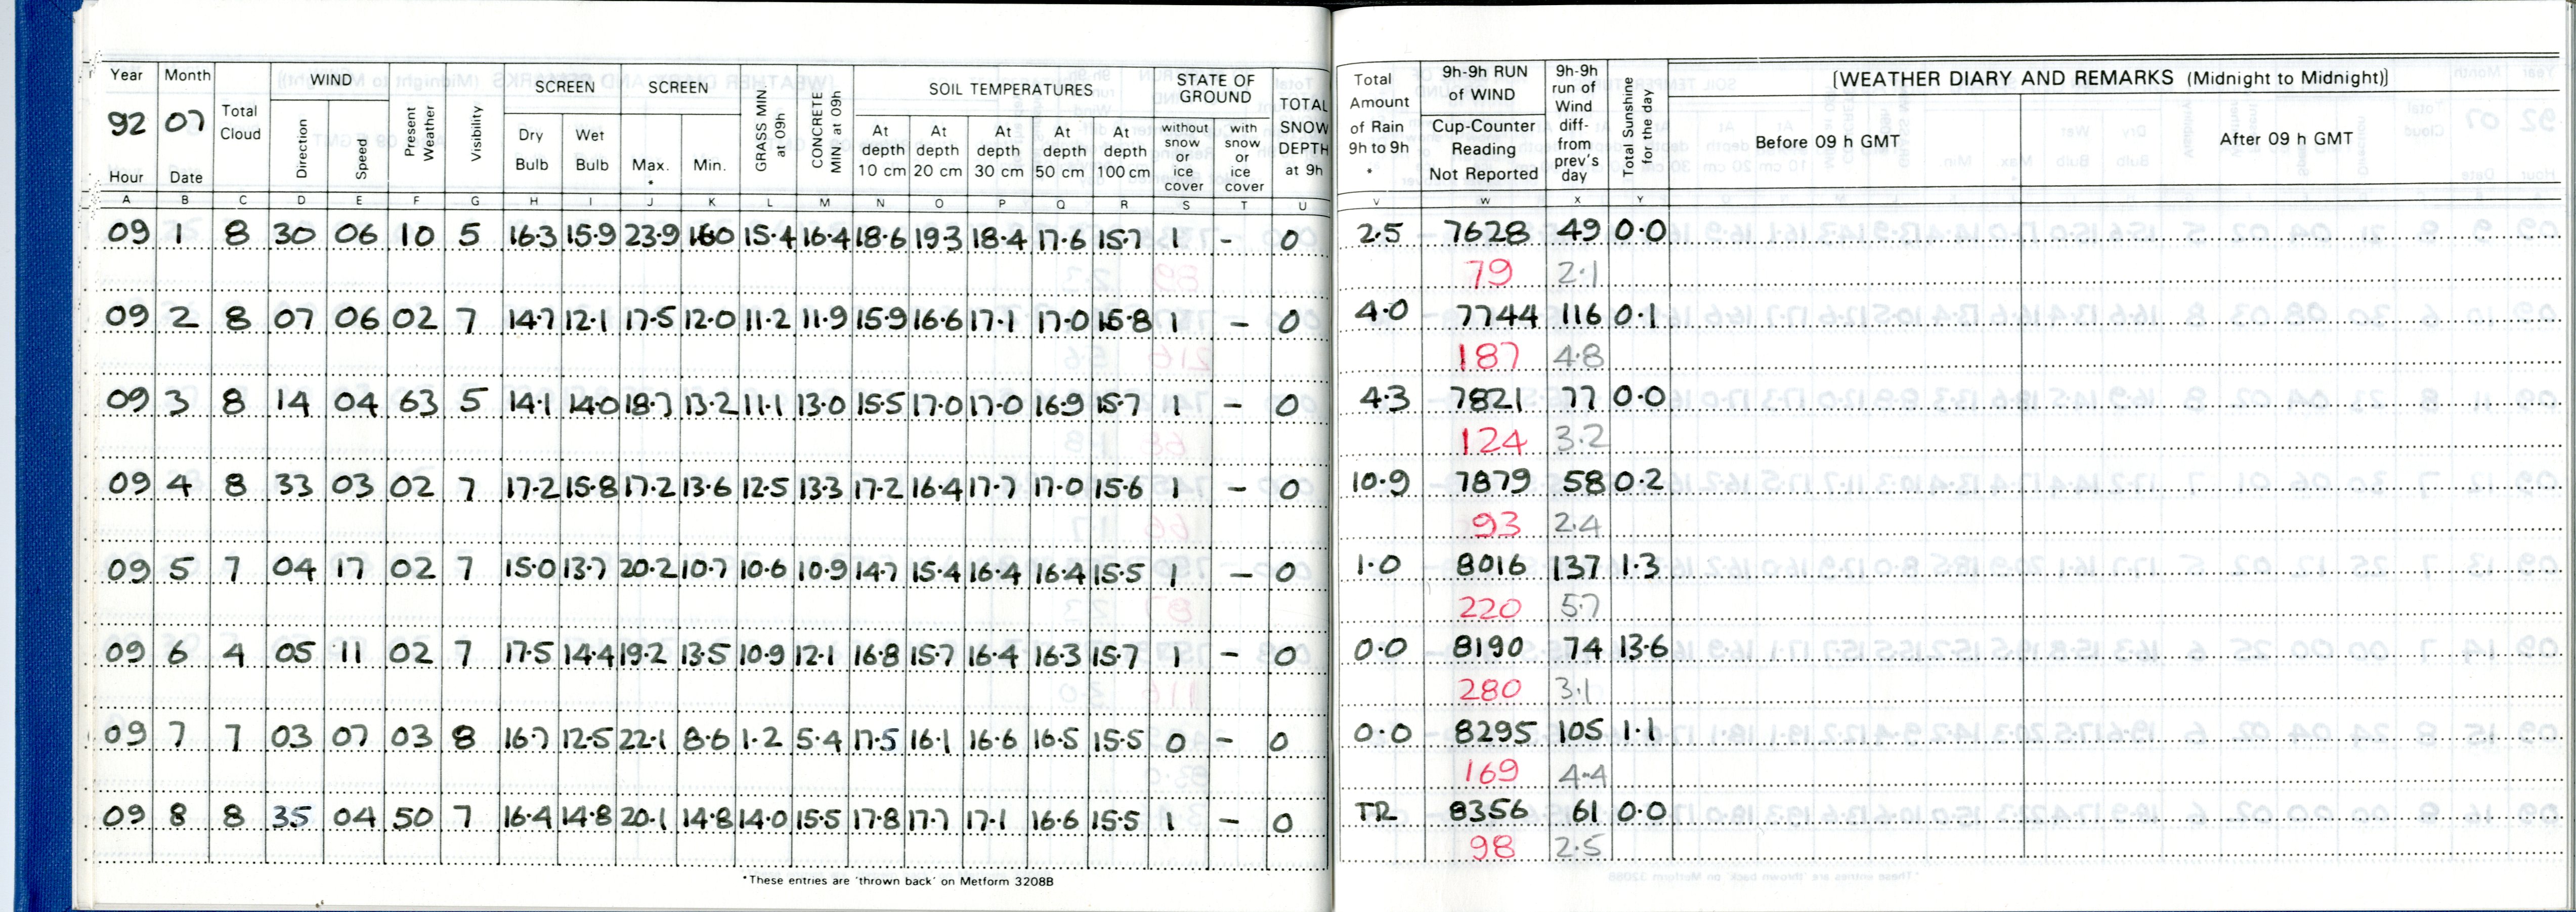 Year Month Total Cloud WIND Present Weather Visibility SCREEN SCREEN GRASS MIN at 09h CONCRETE MIN at 09h SOIL TEMPERATURES STATE OF GROUND TOTAL SNOW DEPTH at 9h Total Amount of Rain 9h to 9h * 9h-9h RUN of WIND 9h-9h run of Wind diff- from prev's day Total Sunshine for the day [WEATHER DIARY AND REMARKS (Midnight to Midnight)]
92 07 Direction Speed Dry Bulb Wet Bulb Max. * Min. At depth 10 cm At depth 20 cm At depth 30 cm At depth 50 cm At depth 100 cm without snow or ice cover with snow or ice cover Cup-Counter Reading Not Reported Before 09 h GMT After 09 h GMT
Hour Date
A B C D E F G H I J K L M N O P Q R S T U V W X Y
09 1 8 30 06 10 5 16.3 15.9 23.9 160 15.4 16.4 18.6 19.3 18.4 17.6 15.7 1 - 0 2.5 7628 49 0.0
79 2.1
09 2 8 07 06 02 7 14.7 12.1 17.5 12.0 11.2 11.9 15.9 16.6 17.1 17.0 15.8 1 - 0 4.0 7744 116 0.1
187 4.8
09 3 8 14 04 63 5 14.1 14.0 18.7 13.2 11.1 13.0 15.5 17.0 17.0 16.9 15.7 1 - 0 4.3 7821 77 0.0
124 3.2
09 4 8 33 03 02 7 17.2 15.8 17.2 13.6 12.5 13.3 17.2 16.4 17.7 17.0 15.6 1 - 0 10.9 7879 58 0.2
93 2.4
09 5 7 04 17 02 7 15.0 13.7 20.2 10.7 10.6 10.9 14.7 15.4 16.4 16.4 15.5 1 - 0 1.0 8016 137 1.3
220 5.7
09 6 4 05 11 02 7 17.5 14.4 19.2 13.5 10.9 12.1 16.8 15.7 16.4 16.3 15.7 1 - 0 0.0 8190 74 13.6
280 3.1
09 7 7 03 07 03 8 16.7 12.5 22.1 8.6 1.2 5.4 17.5 16.1 16.6 16.5 15.5 0 - 0 0.0 8295 105 1.1
169 4.4
09 8 8 35 04 50 7 16.4 14.8 20.1 14.8 14.0 15.5 17.8 17.7 17.1 16.6 15.5 1 - 0 TR 8356 61 0.0
98 2.5
*These entries are 'thrown back' on Metform 3208B